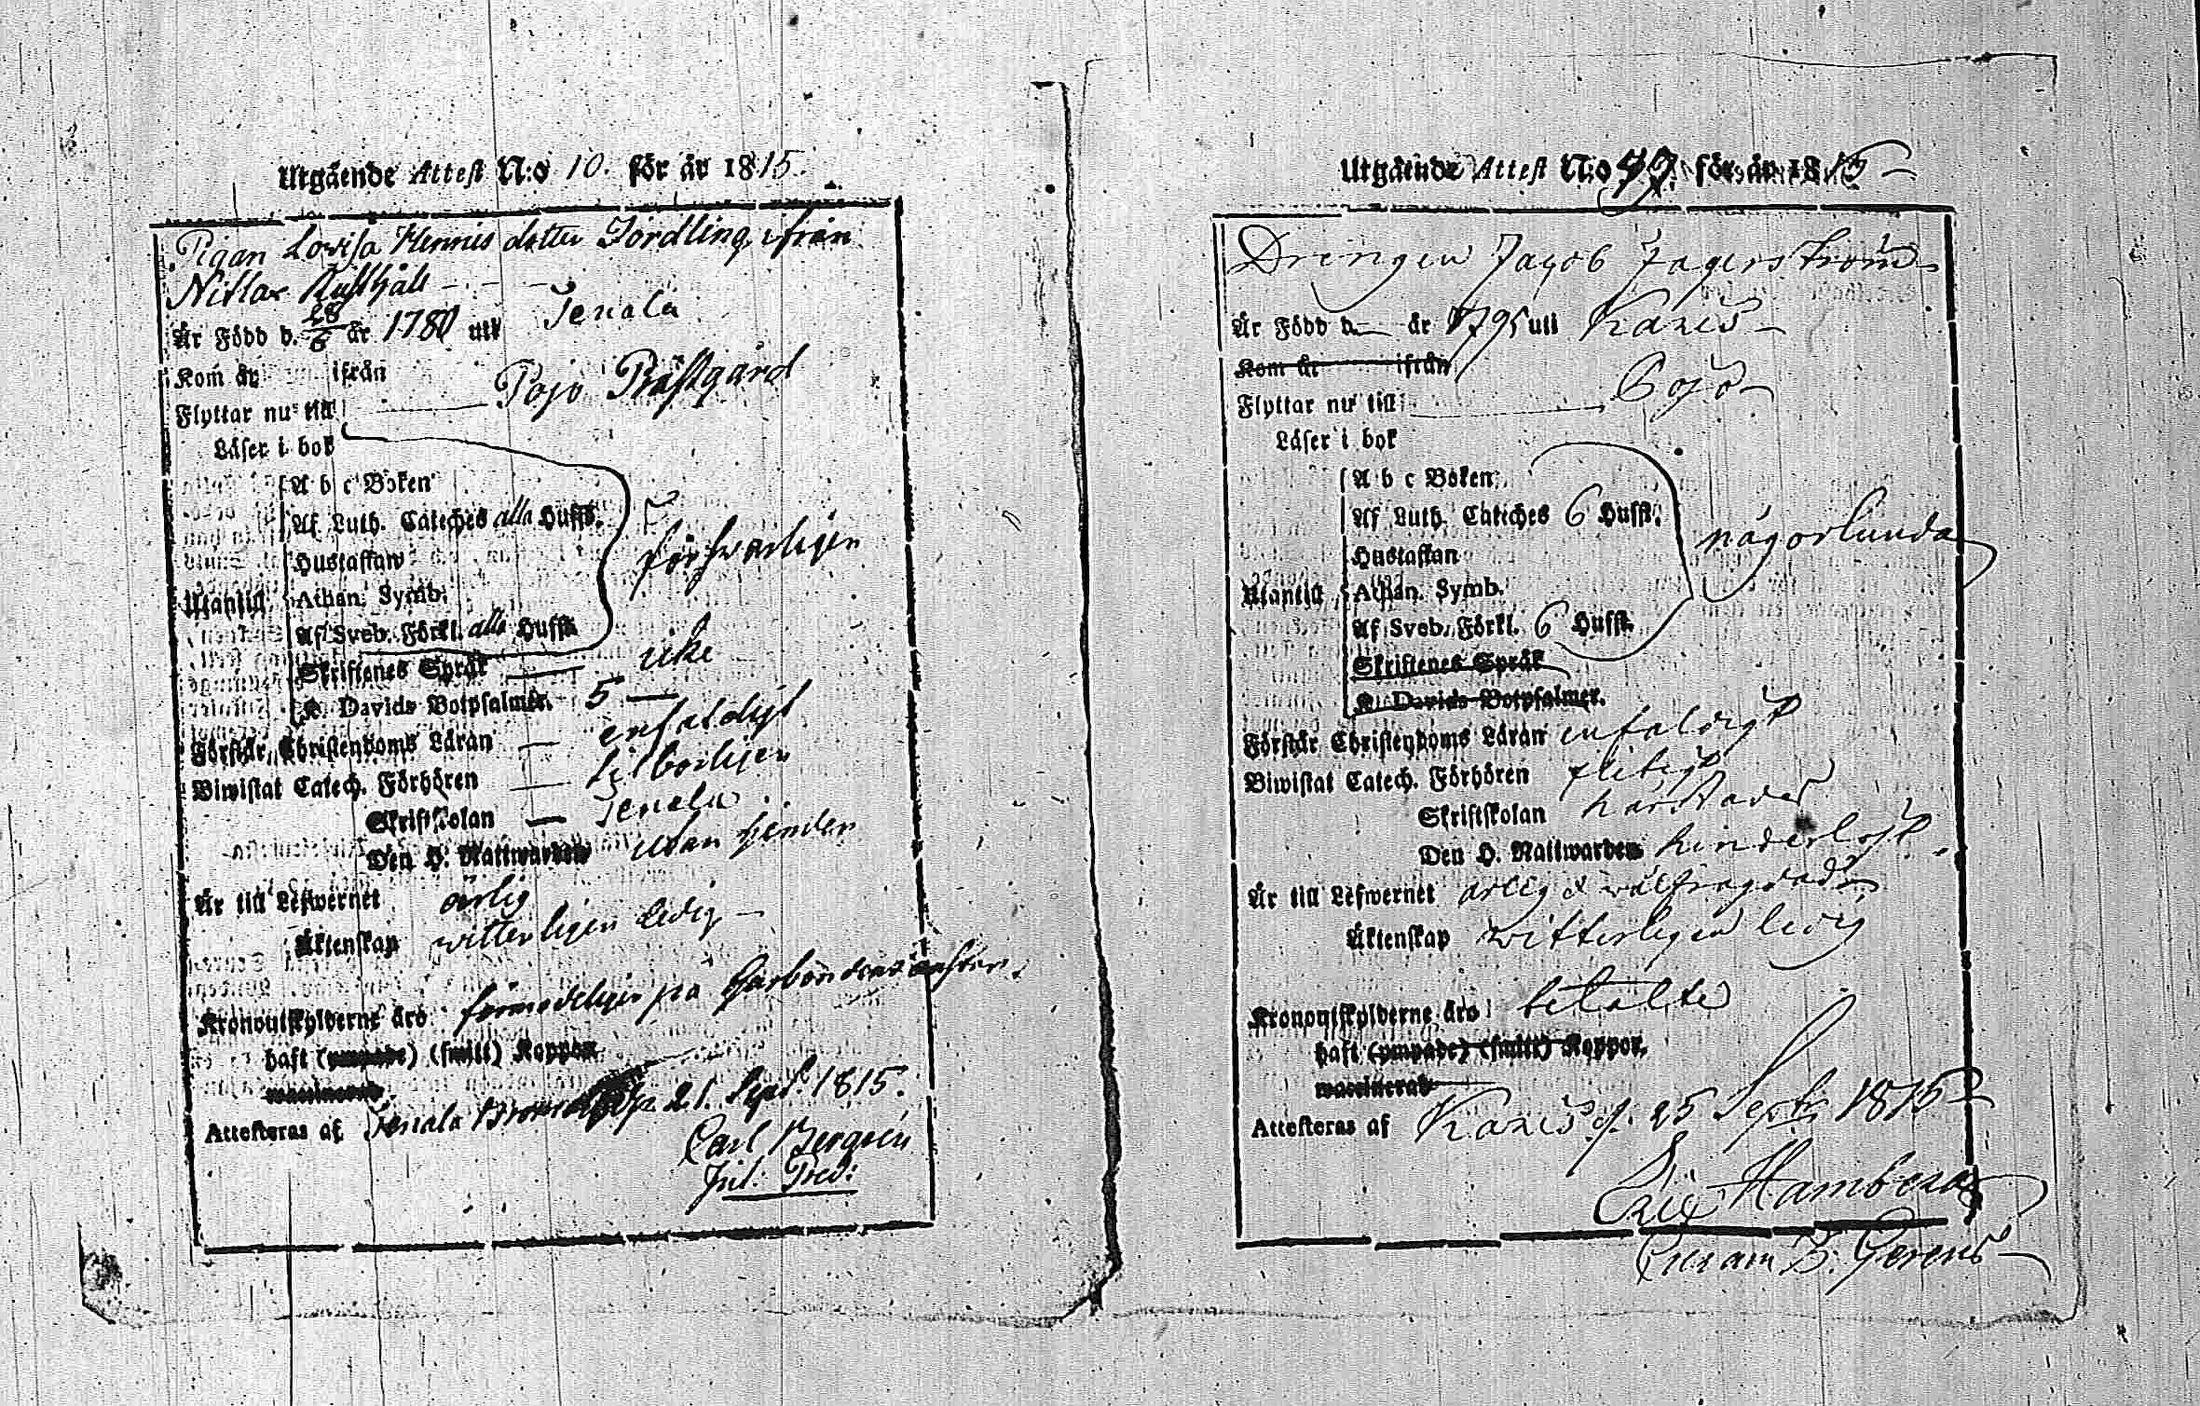 Utgående Attest N:o 10. för år 1815.
Pigan Lovisa Hennis dotter Jordling, ifrån
Nitlax Rusthåll
Är Född d. 28/6 år 1780 uti Tenala
Kom år ifrån
Flyttar nu till Pojo Prästgård
Läser i bok
A b c Boken
Af Luth. Cateches alla Hufst.
Hustaflan
Utantill Athan. Symb.
Af Sveb. Förkl. alla Hufst.
försvarligen
Skriftenes Språk icke
K. Davids Botpsalmer. 5
Förstår Christendoms Läran enfaldigt
Biwistat Catech. Förhören tilbörligen
Skriftskolan Tenala
Den H. Nattwarden utan hinder
Är till Lefwernet ärlig
Äktenskap witterligen ledig
Kronoutskylderne äro förmodeligen på
haft (ympade) (smitt) Koppor
waccinerad
Attesteras af Tenala 21. Sept. 1815.
Carl Bergren
Utgående Attest N:o för år 1815
Drengen Jacob Jagerström
Är Född d. år 1795 uti Karis
Kom år ifrån
Flyttar nu till Pojo
Läser i bok
A b c Boken
Af Luth. Cateches 6 Hufst.
Hustaflan
Utantill Athan. Symb.
Af Sveb. Förkl. 6 Hufst.
någorlunda
Skriftenes Språk
K. Davids Botpsalmer.
Förstår Christendoms Läran enfaldigt
Biwistat Catech. Förhören flitigt
Skriftskolan härstädes
Den H. Nattwarden hinderlöst
Är till Lefwernet ärlig & wälfrägdad
Äktenskap witterligen ledig
Kronoutskylderne äro betalte
haft (ympade) (smitt) Koppor.
waccinerad
Attesteras af Karis d. 25 Septr 1815
Eric Hamberg